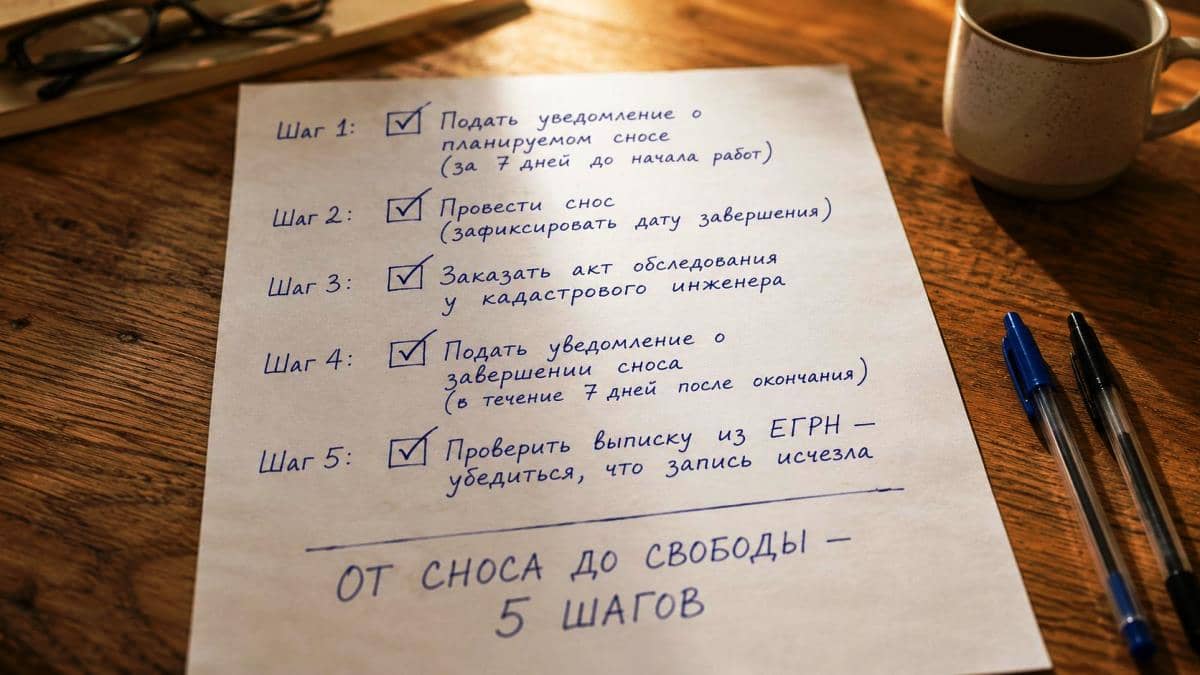 Шаг 1: Подать уведомление о
планируемом сносе
(за 7 дней до начала работ)
Шаг 2: Провести снос
(зафиксировать дату завершения)
Шаг 3: Заказать акт обследования
у кадастрового инженера
Шаг 4: Подать уведомление о
завершении сноса
(в течение 7 дней после окончания)
Шаг 5: Проверить выписку из ЕГРН —
убедиться, что запись исчезла
ОТ СНОСА ДО СВОБОДЫ —
5 ШАГОВ